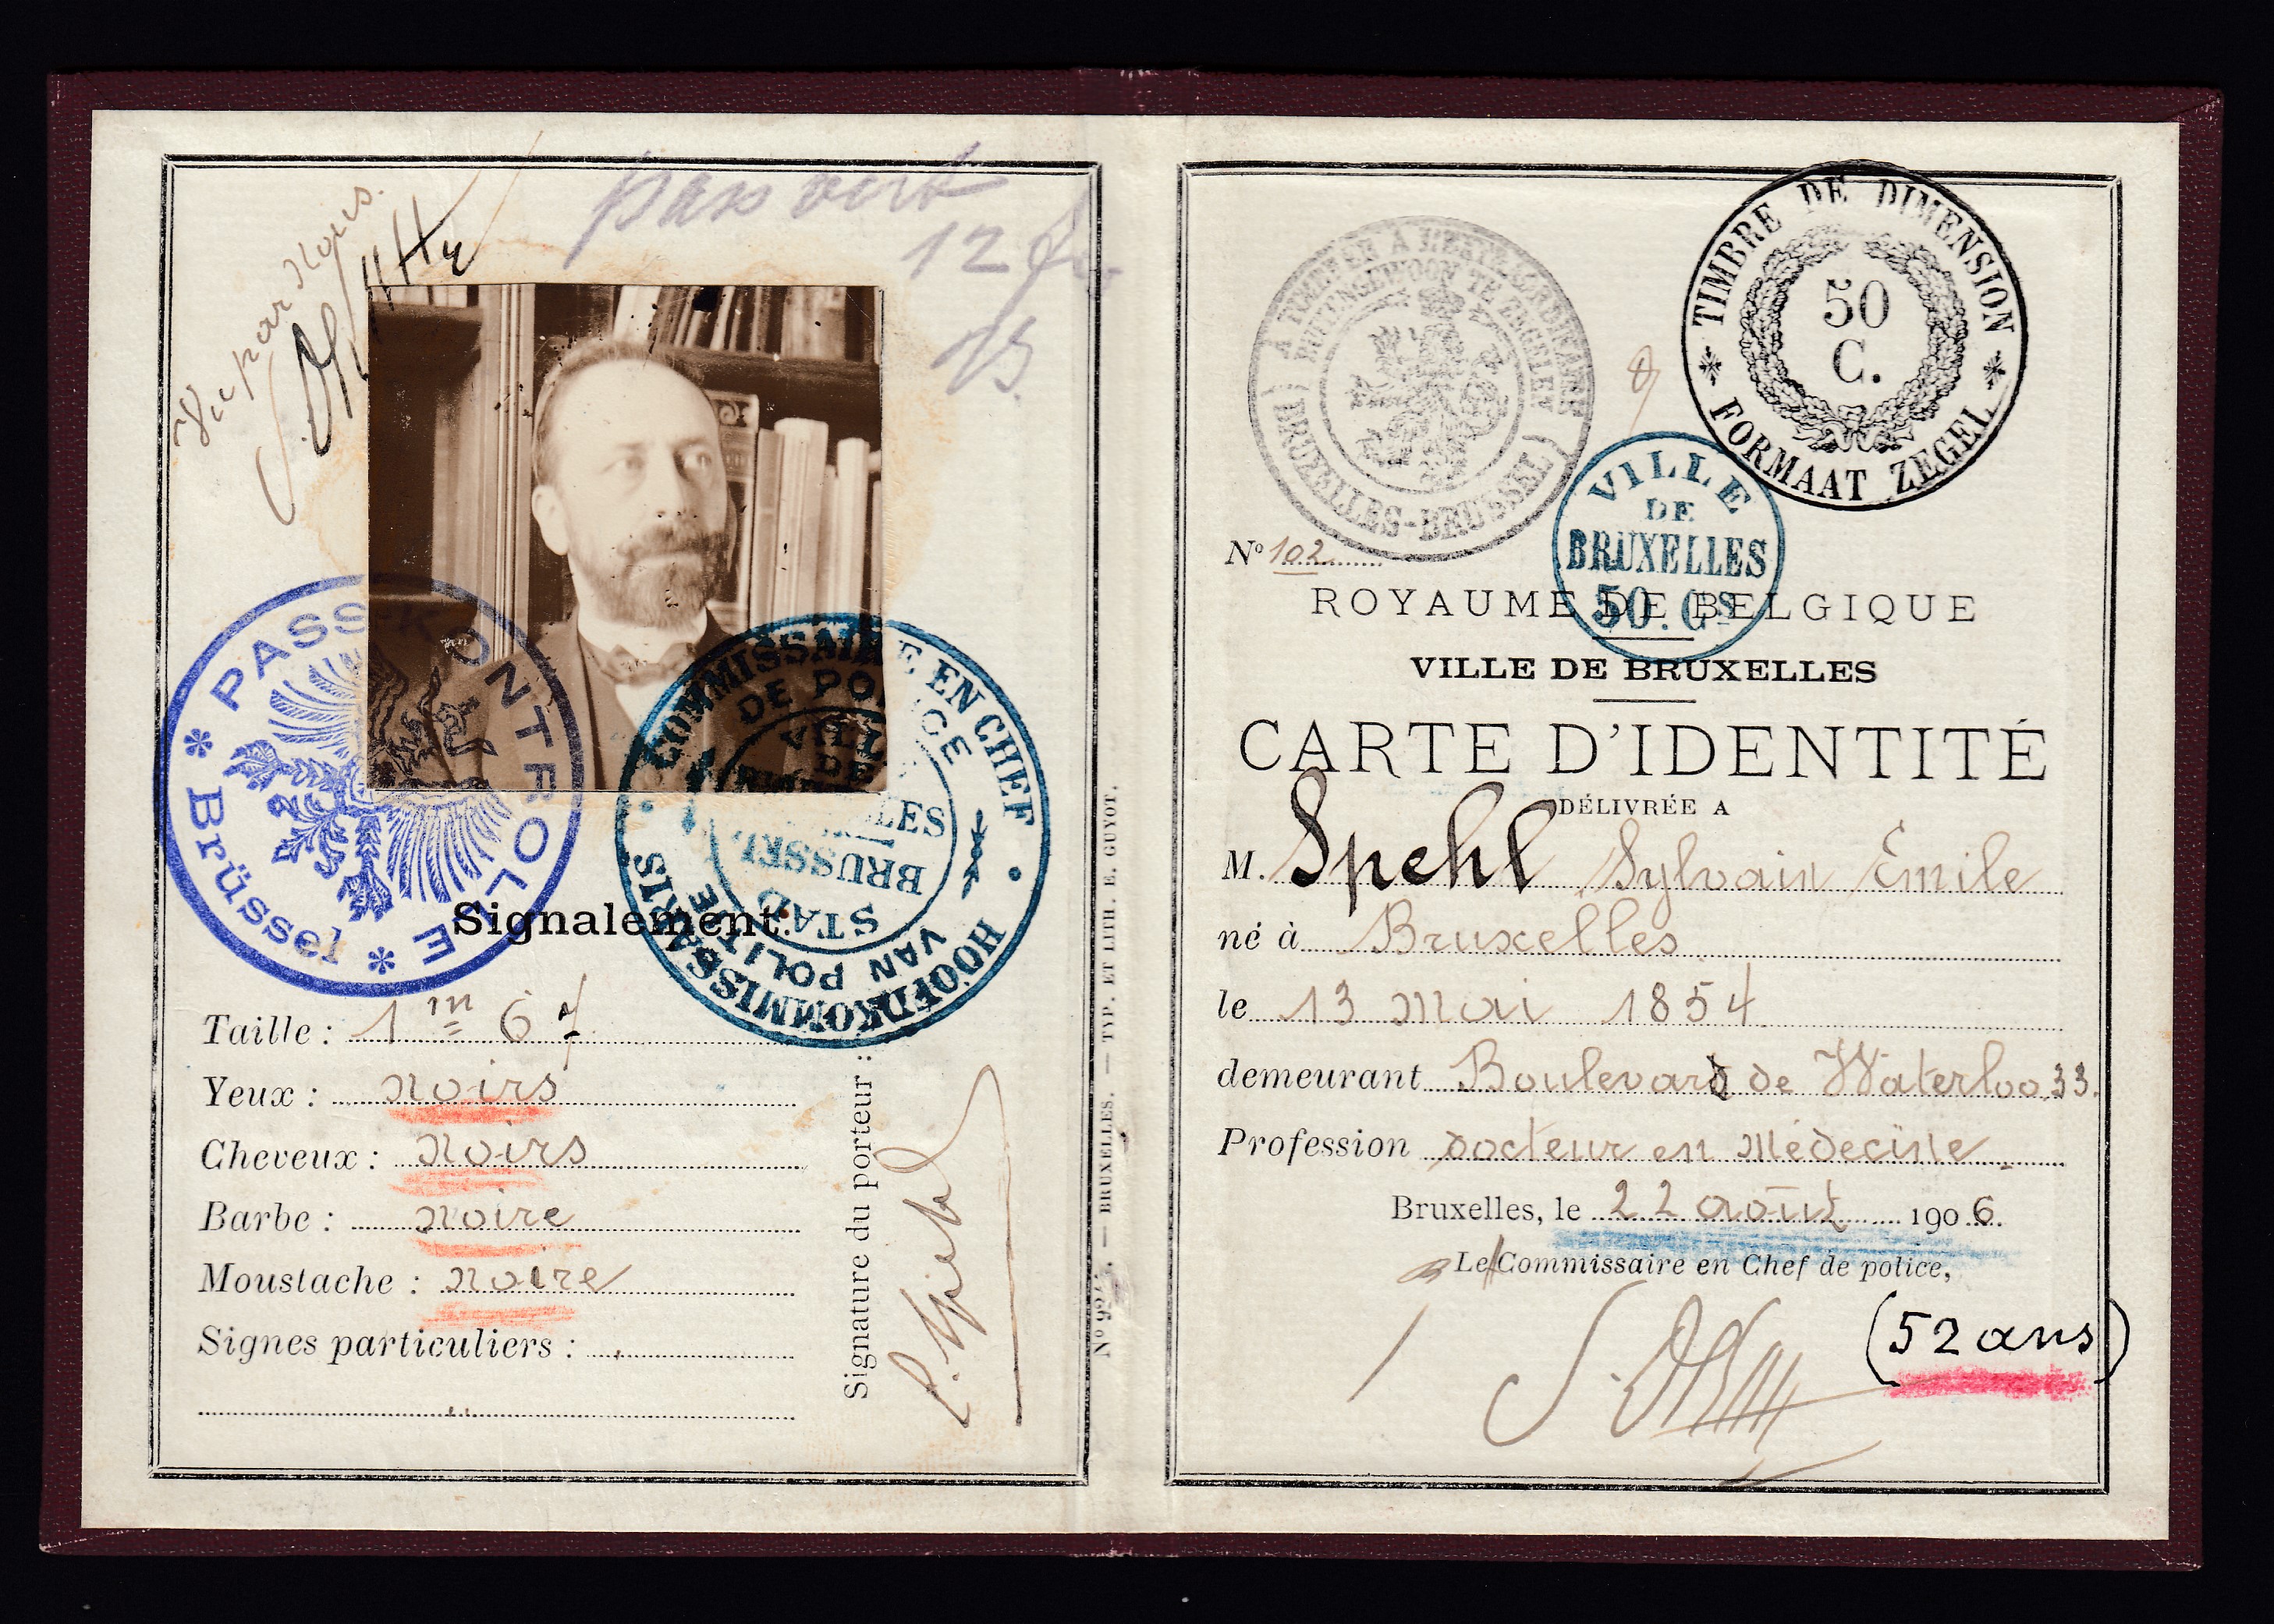 Vu par nous.
pass vert
12 fr.
PASS-KONTROLLE
* Brüssel *
COMMISSAIRE EN CHEF
DE POLICE
VILLE
DE
BRUXELLES
STAD
BRUSSEL
HOOFDKOMMISSARIS
VAN POLITIE
Signalement:
Taille : 1m 67
Yeux : noirs
Cheveux : noirs
Barbe : noire
Moustache : noire
Signes particuliers :
Signature du porteur :
— BRUXELLES. — TYP. ET LITH. E. GUYOT.
À TIMBRER À L'EXTRAORDINAIRE
BUITENGEWOON TE ZEGELEN
(BRUXELLES-BRUSSEL)
TIMBRE DE DIMENSION
50
C.
* FORMAAT ZEGEL *
VILLE
DE
BRUXELLES
50. Cs
No 102
ROYAUME DE BELGIQUE
VILLE DE BRUXELLES
CARTE D'IDENTITÉ
DÉLIVRÉE A
M. Spehl Sylvain Émile
né à Bruxelles
le 13 Mai 1854
demeurant Boulevard de Waterloo 33.
Profession Docteur en Médecine
Bruxelles, le 22 août 1906.
Le Commissaire en Chef de police,
(52 ans)